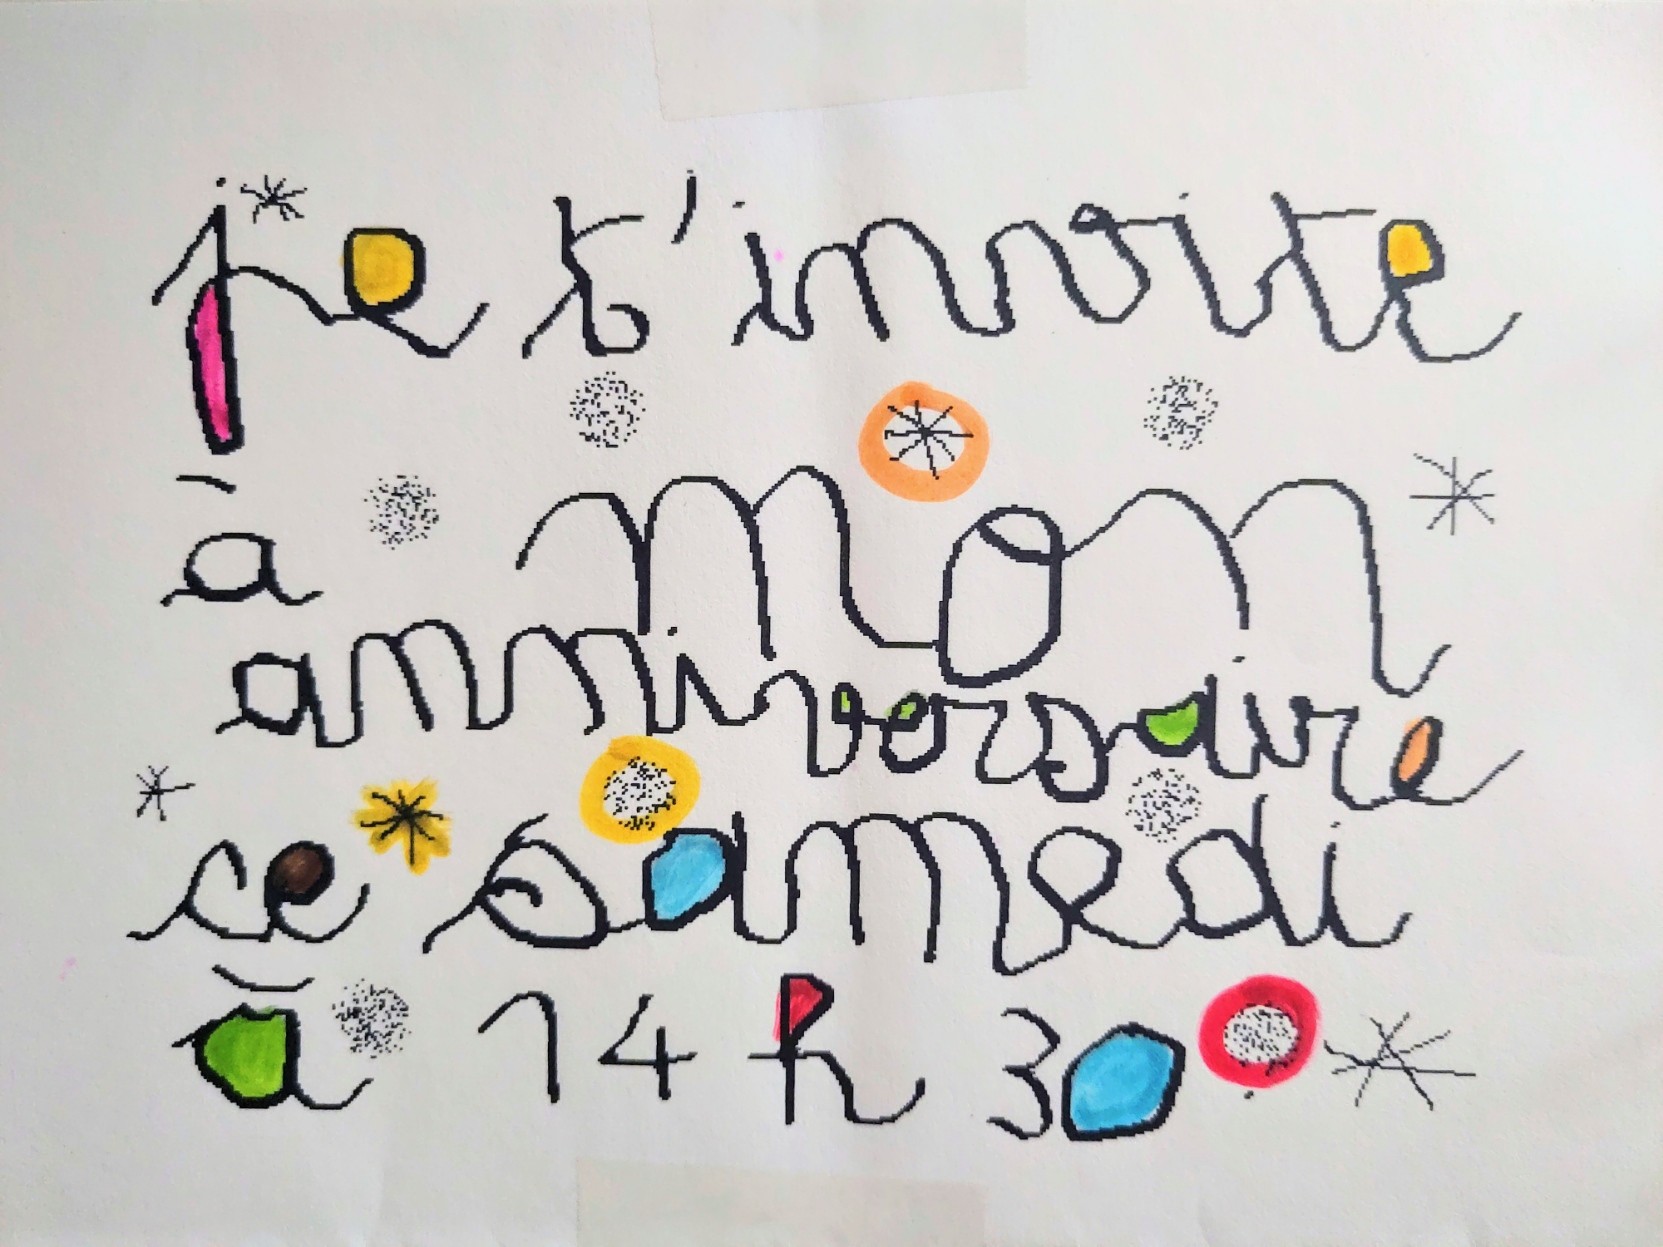 je t'invite
à mon
anniversaire
ce samedi
à 14 h 30.